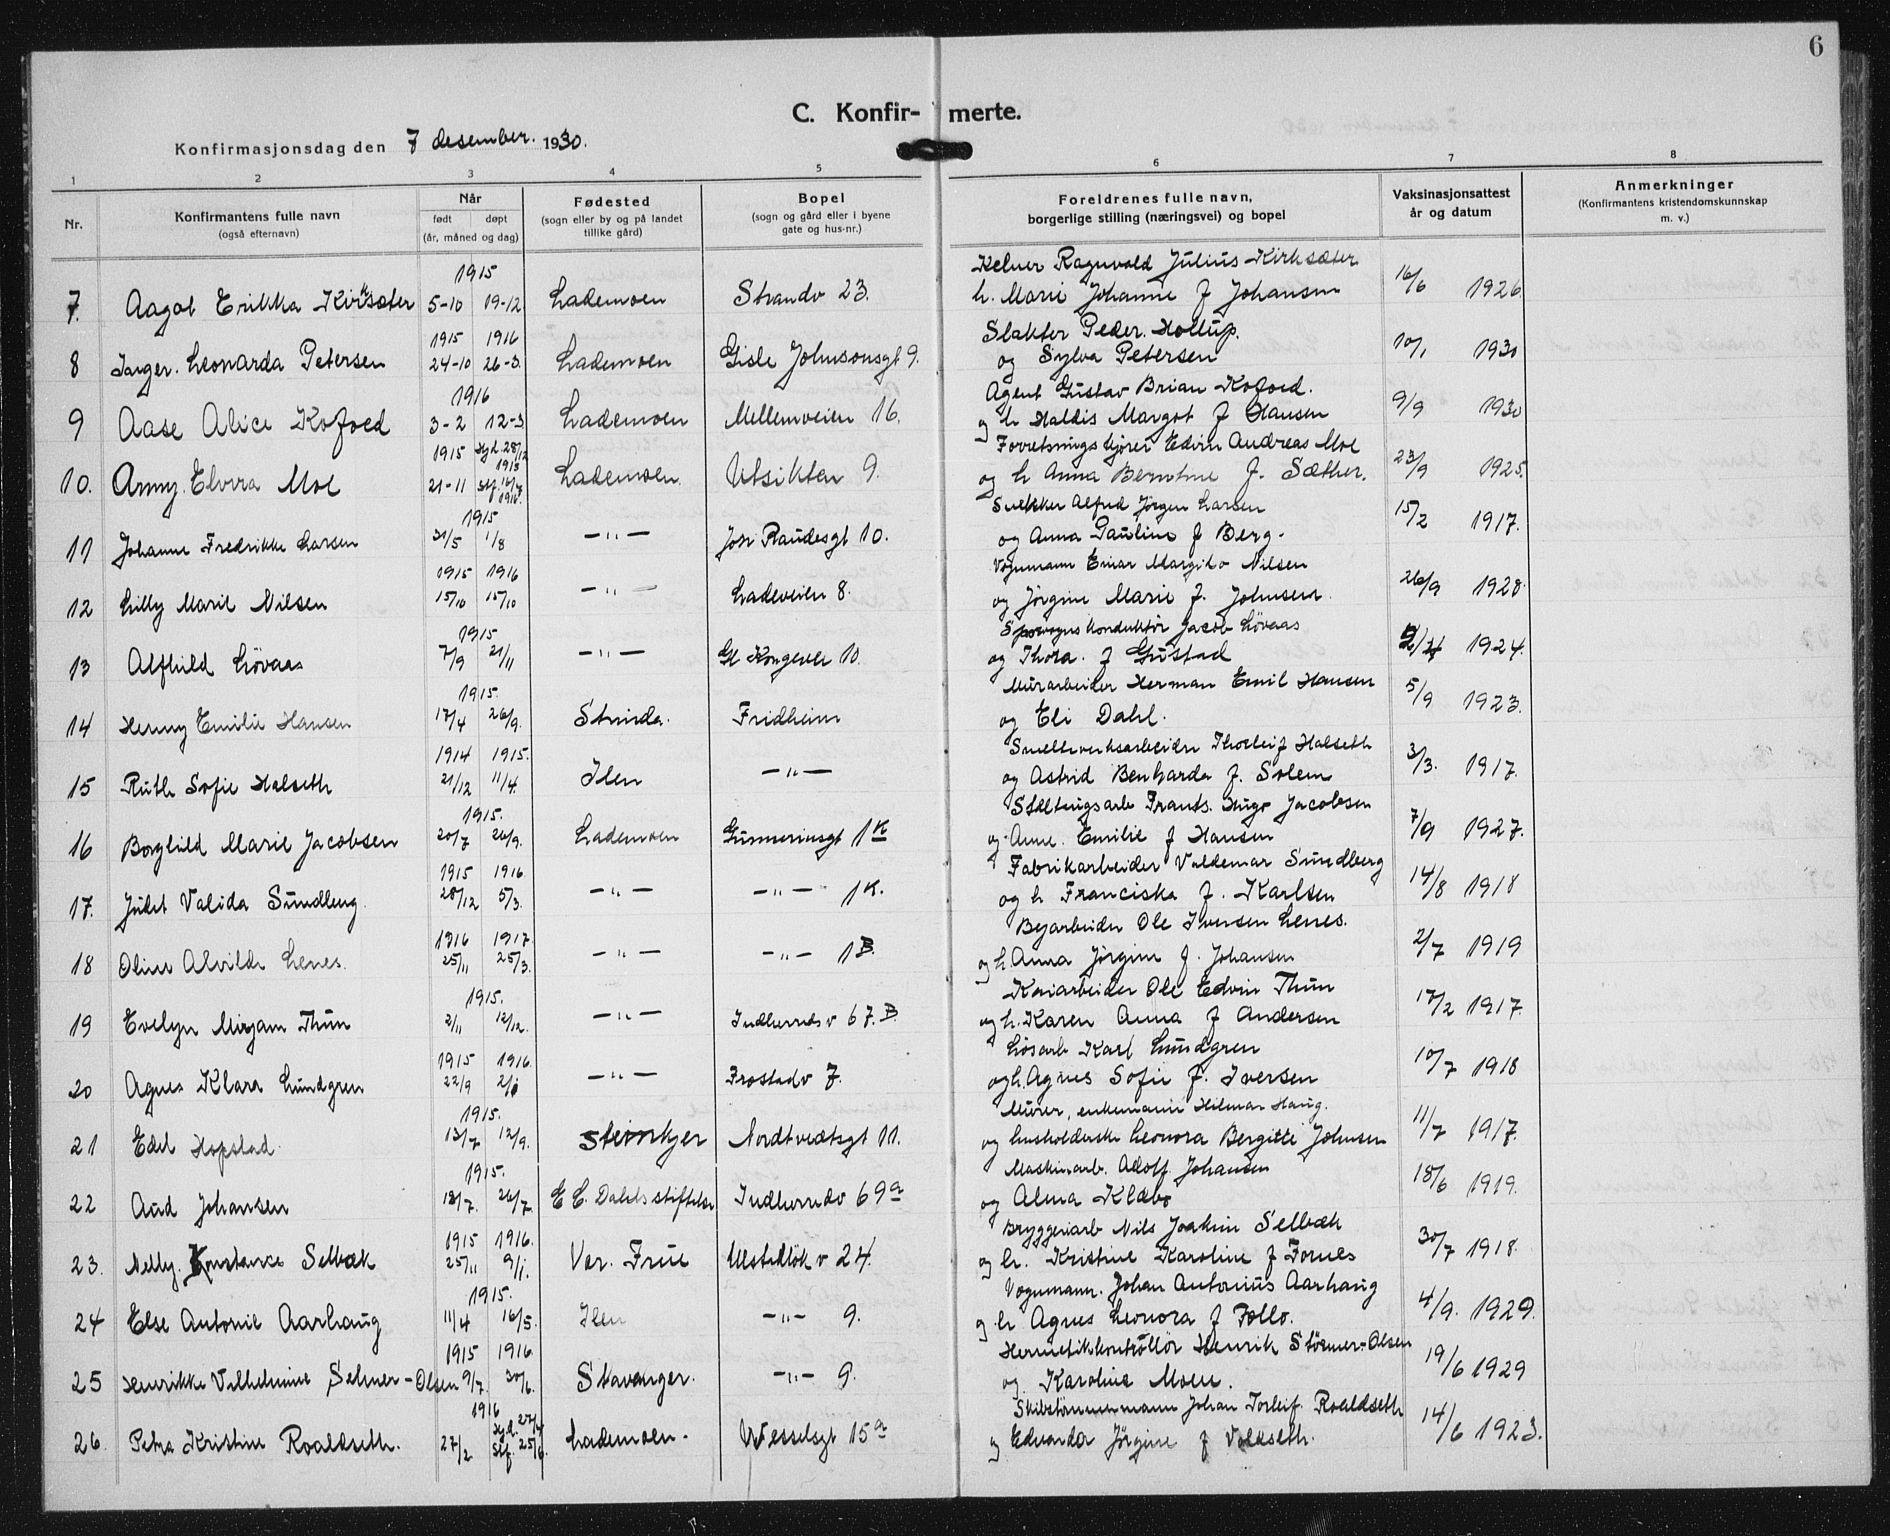 6
C. Konfir- merte.
Konfirmasjonsdag den 7 desember. 1930.
1 2 3 4 5 6 7 8
Nr. Konfirmantens fulle navn (også efternavn) Når født døpt (år, måned og dag) Fødested (sogn eller by og på landet tillike gård) Bopel (sogn og gård eller i byene gate og hus-nr.) Foreldrenes fulle navn, borgerlige stilling (næringsvei) og bopel Vaksinasjonsattest år og datum Anmerkninger (Konfirmantens kristendomskunnskap m. v.)
1915 Kelner Ragnvald Julius Kirksæter
7. Aagot Erikka Kirksæter 5-10 19-12 Lademoen Strandv 23. h. Marie Johanne f Johansen 16/6 1926
1915 1916 Slakter Peder Hollup.
8 Inger. Leonarda Petersen 24-10 26-3. Lademoen Gisle Johnsonsgt 9. og Sylva Petersen 10/1 1930
1916 Agent Gustav Brian Kofoed.
9 Aase Alice Kofoed 3-2 12-3 Lademoen Mellemveien 16. og h Haldis Margot f Hansen 9/9 1930
1915 Hjd. 28/12 1915 Forretningsfører Edvin Andreas Moe
10. Anny Elvira Moe 21-11 Stf. 16/7 1916. Lademoen. Utsikten 9. og h Anna Berntine f. Sæther. 23/9 1925.
1915 Snekker Alfred Jørgen Larsen
11 Johanne Fredrikke Larsen 21/5 1/8 — " — Jon Raudesgt 10. og Anna Pauline f Berg. 15/2 1917.
1915 1916 Vognmann Einar Margido Nilsen
12 Lilly Marie Nilsen 15/10 15/10 — " — Ladeveien 8. og Jørgine Marie f. Johnsen. 26/9 1928.
1915 Sporvognskonduktør Jacob Løvaas
13 Alfhild Løvaas 7/9 21/11 — " — Gl Kongevei 10. og Thora. f Gustad 1924.
1915. Murarbeider Herman Emil Hansen
14 Henny Emilie Hansen 17/4 26/9. Strinda. Fridheim og Eli Dahl. 5/9 1923.
1914 1915. Smelteverksarbeider Thorleif Halseth
15 Ruth Sofie Halseth 21/12 11/4. Ilen — " — og Astrid Benharda f. Solem 3/3. 1917.
1915. Frants. Hugo Jacobsen
16 Borghild Marie Jacobsen 20/7 26/9. Lademoen Gunnerusgt 1K og Anne. Emilie f Hansen 7/9 1927.
1915 1916 Fabrikarbeider Valdemar Sundberg
17. Juliet Valida Sundberg 28/12 5/3. — " — — " — 1K. og h Franciska f. Karlsen 14/8 1918
1916 1917. Byarbeider Ole Iversen Lenes.
18 Oline Alvilde Lenes. 25/11 25/3. — " — — " — 1B. og h. Anna Jørgine f. Johansen 2/7 1919
1915. Kaiarbeider Ole Edvin Thun
19 Evelyn Mirjam Thun 2/11 12/12. — " — Indherredsv 67.B. og h. Karen Anna f Andersen 17/2 1917
1915 1916. Løsarb Karl Lundgren
20 Agnes Klara Lundgren 22/9 — " — Frostadv 7. og h. Agnes Sofie f. Iversen 10/7 1918
1915. Murer, enkemann Hilmar Haug.
21 Edel Hopstad. 13/7 12/9. Steinkjer Nordtvedtsgt 11. og husholderske Leonora Bergitte Johnsen 11/7 1917.
1915. Maskinarb. Adolf Johansen
22 Aud Johansen 18/7. 26/7. E C. Dahls stiftelse Indherredv 69a og Alma Klæbo 18/6 1919.
1915 1916. Bryggeriarb Nils Joakim Selbæk
23. Nelly. Konstanse Selbæk 25/11 9/1. Vor. Frue Ulstadløk v 24. og h. Kristine Karoline f Fornes 30/7 1918.
1915. Vognmann. Johan Antonius Aarhaug
24 Else Antonie Aarhaug 11/4 16/5. Ilen — " — 9. og h Agnes Leonora f Follo. 4/9. 1929.
1915 1916 Hermetikkontrollør Henrik Størmer-Olsen
25 Henrikke Vilhelmine Selmer-Olsen 9/7. 30/6. Stavanger. — " — 9. og Karoline Moen. 19/6 1929
1916 Hjd. 27/4 Skibstømmermann Johan Torleif. Roaldseth
26. Petra Kristine Roaldseth. 27/2 Stf. 25/6. Lademoen. Wesselsgt 15a og Edvarda Jørgine f Volkseth. 14/6 1923.